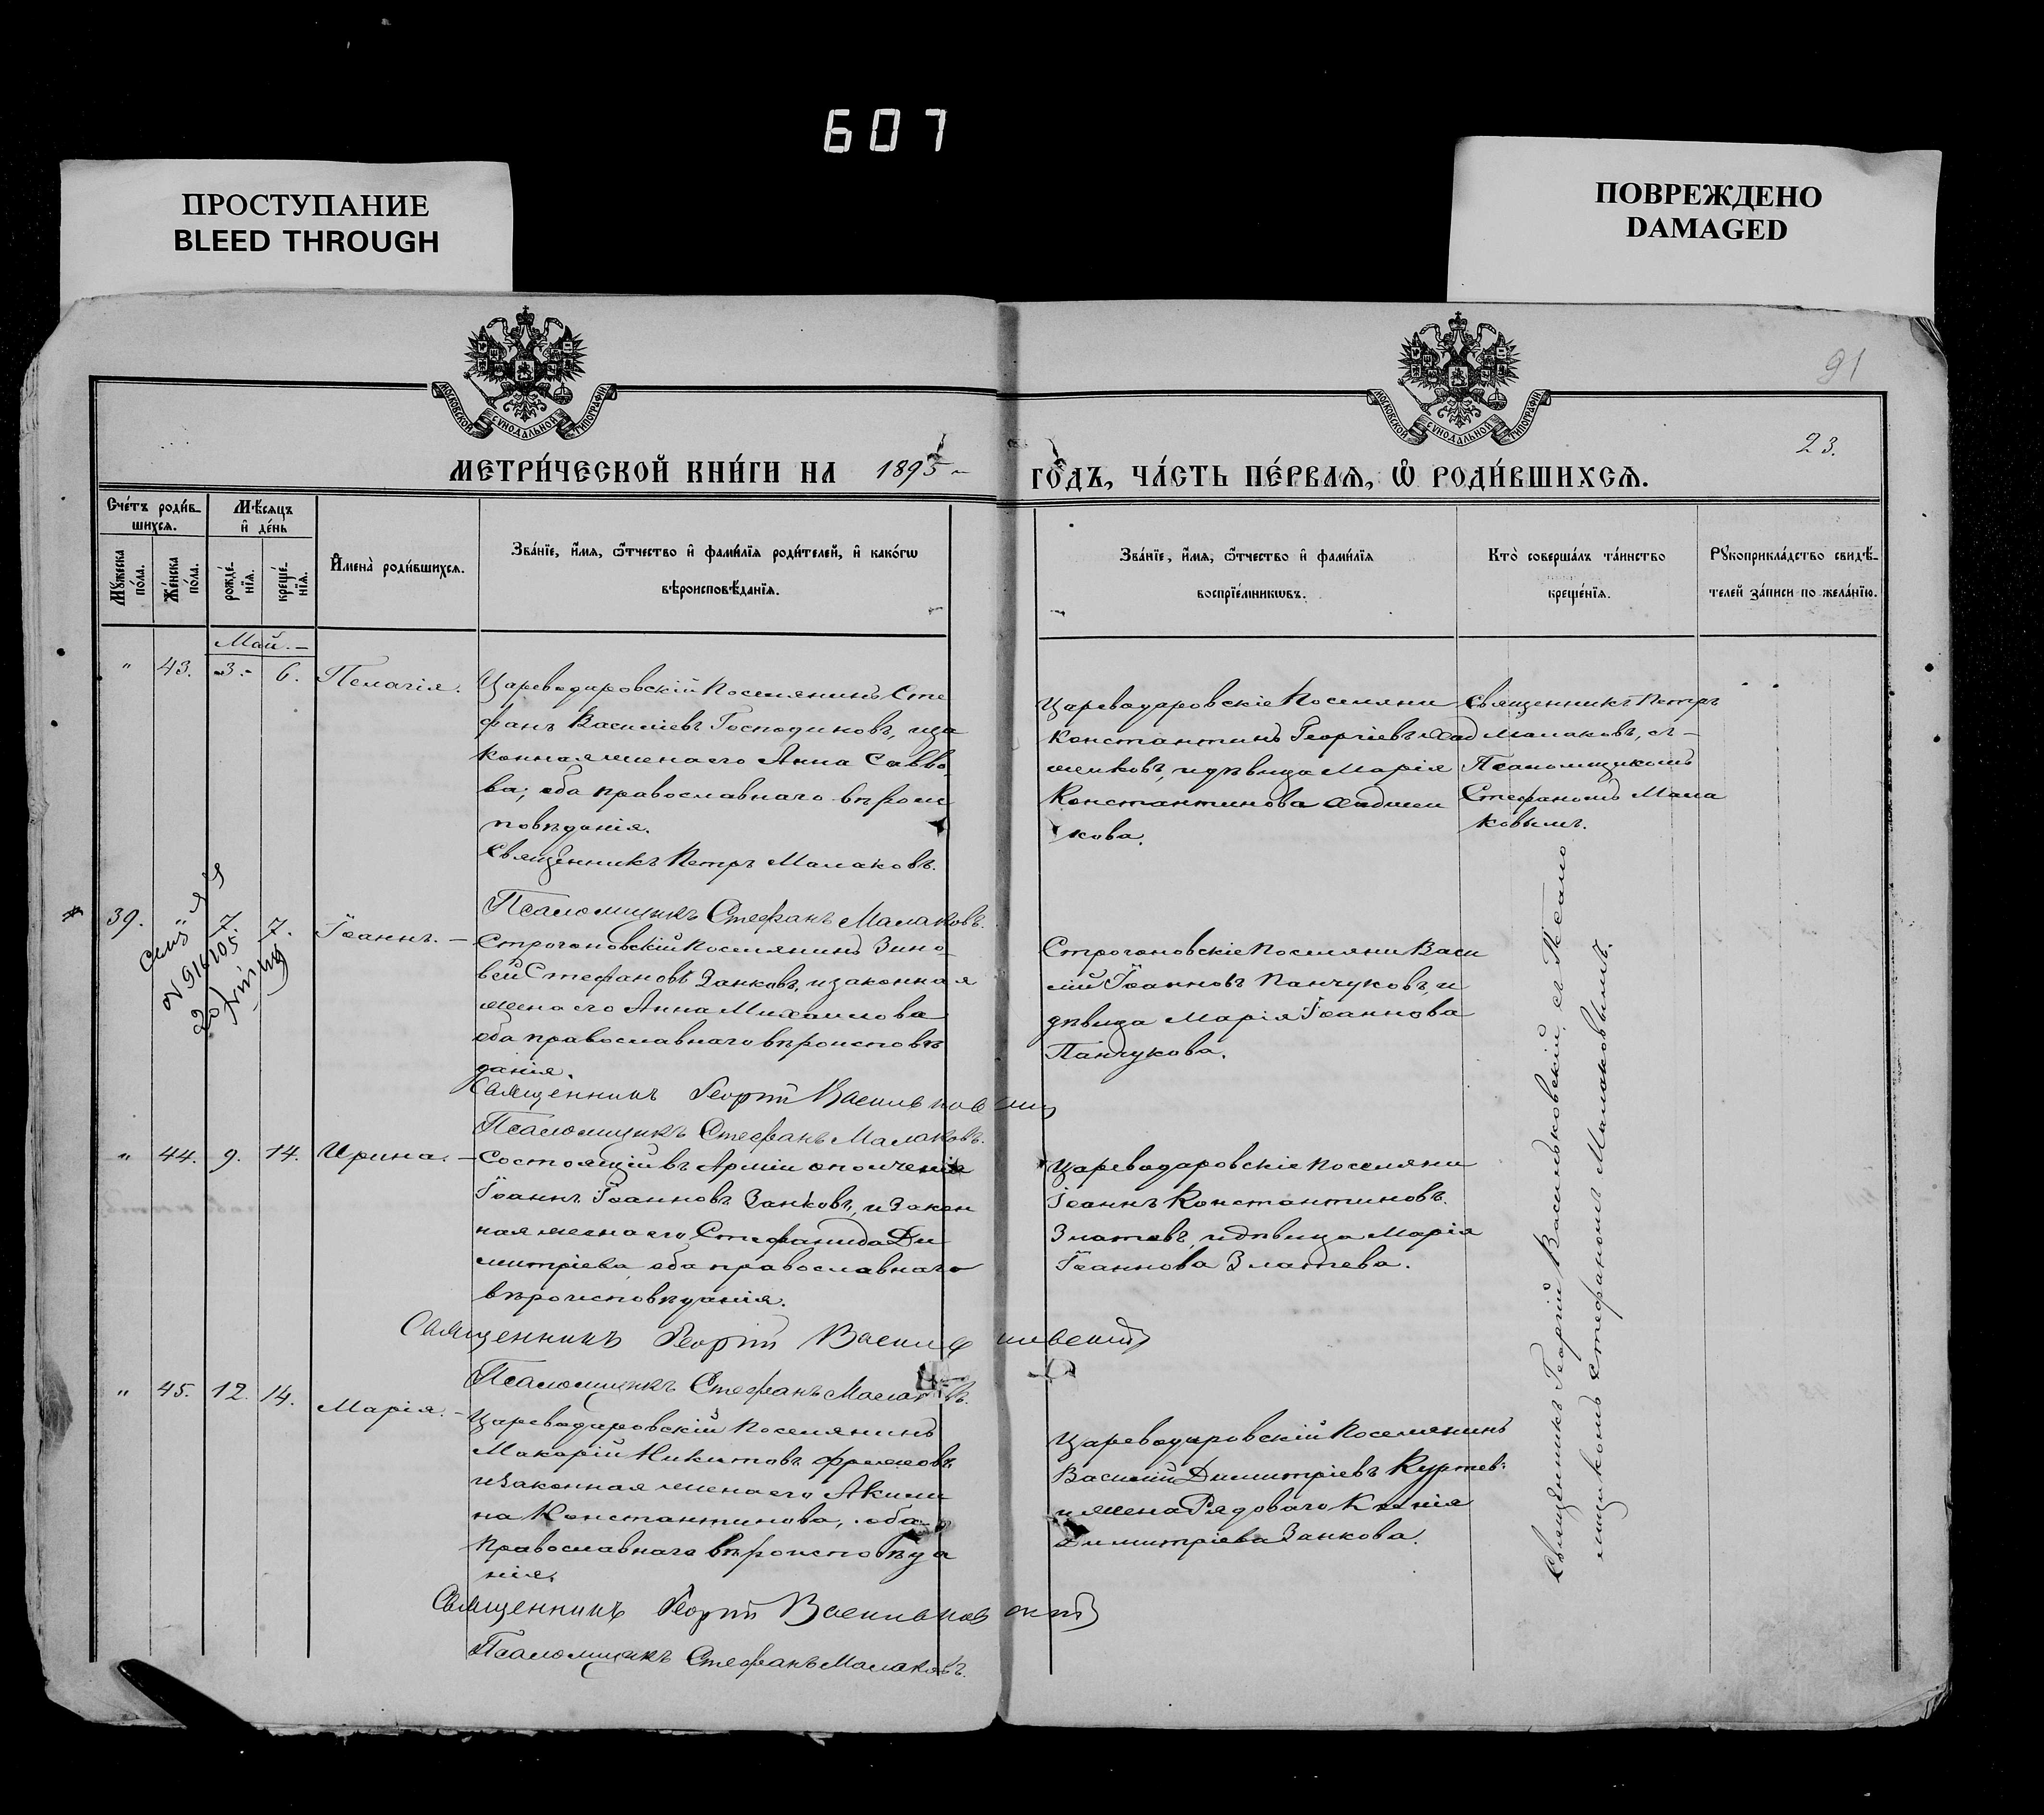 607
ПРОСТУПАНИЕ
BLEED THROUGH
ПОВРЕЖДЕНО
DAMAGED
МОСКОВСКОЙ СѴНОДАЛЬНОЙ ТИПОГРАФІИ
МОСКОВСКОЙ СѴНОДАЛЬНОЙ ТИПОГРАФІИ
91
23.
МЕТРИ́ЧЕСКОЙ КНИ́ГИ НА 1895
ГО́ДЪ, ЧА́СТЬ ПЕ́РВАѦ, Ѡ РОДИ́ВШИХСѦ.
Сче́тъ роди́в-
шихсѧ.
Мꙋ́жеска по́ла.
Же́нска по́ла.
Мѣ́сѧцъ
и҆ де́нь
рожде́-
нїѧ.
креще́-
нїѧ.
И҆мена̀ роди́вшихсѧ.
Зва́нїе, и҆́мѧ, ѻ҆́тчество и҆ фами́лїѧ роди́телей, и҆ како́гѡ
вѣроисповѣ́данїѧ.
Зва́нїе, и҆́мѧ, ѻ҆́тчество и҆ фами́лїѧ
воспрїе́мникѡвъ.
Кто̀ соверша́лъ та́инство
креще́нїѧ.
Рꙋкоприкла́дство свидѣ́-
телей за́писи по жела́нїю.
Май.
" 43. 3. 6. Пелагія.
Цареводаровскій Поселянинъ Сте
фанъ Василіевъ Господиновъ, и за
конная жена его Анна Савво
ва; оба православнаго вѣроис
повѣданія.
Священникъ Петръ Малаковъ.
Псаломщикъ Стефанъ Малаковъ.
Цареводаровскіе Поселяни
Константинъ Георгіевъ Хад
жиковъ, и дѣвица Марія
Константинова Хаджи
кова.
Священникъ Петръ
Малаковъ, съ
Псаломщикомъ
Стефаномъ Мала
ковымъ.
39. " 7. 7. Іоаннъ.
Строгоновскій Поселянинъ Зино
вей Стефановъ Занковъ, и законная
жена его Анна Михаилова
оба православнаго вѣроисповѣ
данія.
Священникъ Георгій Васильковскій
Псаломщикъ Стефанъ Малаковъ.
Строгоновскіе Поселяни Васи
лій Іоанновъ Панчуковъ, и
дѣвица Марія Іоаннова
Панчукова.
" 44. 9. 14. Ирина.
Состоящій въ Арміи ополченія
Іоаннъ Іоанновъ Занковъ, и закон
ная жена его Стефанида Ди
митріева, оба православнаго
вѣроисповѣданія.
Священникъ Георгій Васильковскій
Псаломщикъ Стефанъ Малаковъ.
Цареводаровскіе поселяни
Іоаннъ Константиновъ
Златевъ, и дѣвица Марія
Іоаннова Златева.
" 45. 12. 14. Марія.
Цареводаровскій Поселянинъ
Макарій Никитовъ
и законная жена его Акили
на Константинова, оба
Православнаго вѣроисповѣда
нія.
Священникъ Георгій Васильковскій
Псаломщикъ Стефанъ Малаковъ.
Цареводаровскій Поселянинъ
Василій Димитріевъ Куртевъ
и жена Рядоваго Ксенія
Димитріева Занкова.
Священникъ Георгій Васильковскій, съ Псало
мщикомъ Стефаномъ Малаковымъ.